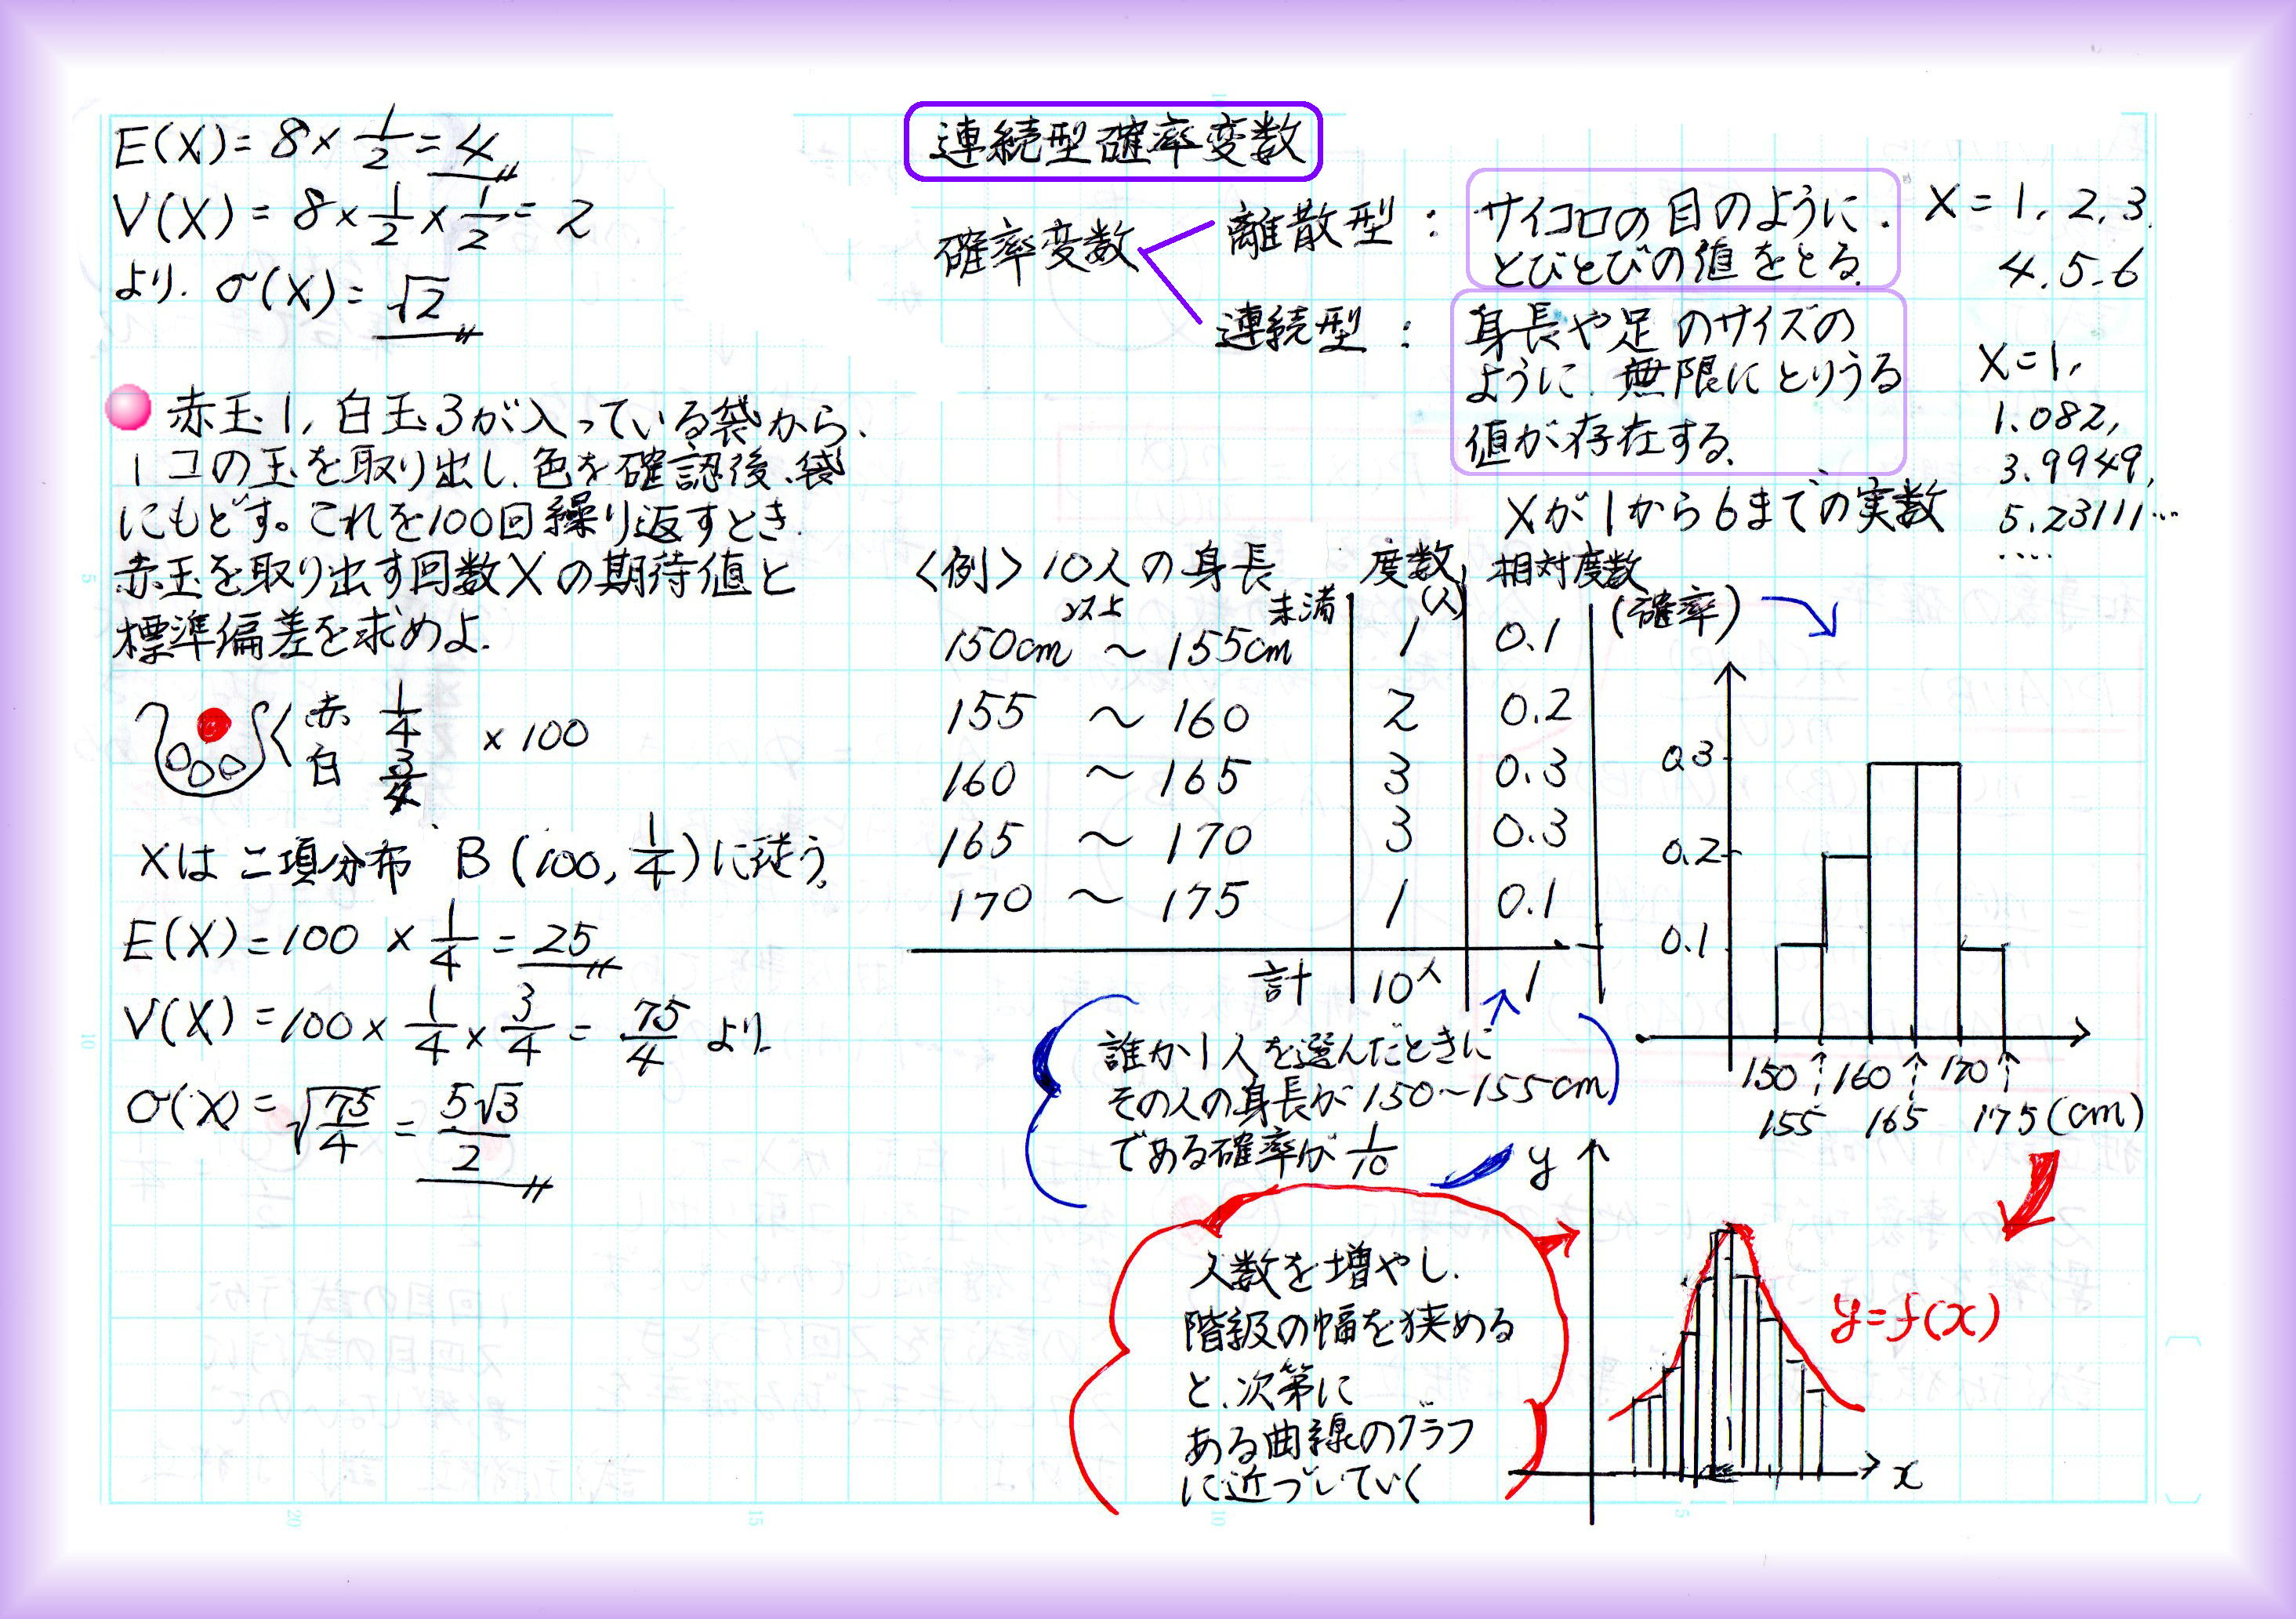 E(X)=8×1/2=4
V(X)=8×1/2×1/2=2
より. σ(X)=√2
赤玉1, 白玉3が入っている袋から、
1コの玉を取り出し、色を確認後、袋
にもどす。これを100回繰り返すとき
赤玉を取り出す回数Xの期待値と
標準偏差を求めよ.
赤 1/4
白 3/4
×100
Xは二項分布 B(100, 1/4)に従う。
E(X)=100×1/4=25
V(X)=100×1/4×3/4=75/4 より
σ(X)=√75/4=5√3/2
連続型確率変数
確率変数
離散型:
サイコロの目のように.
とびとびの値をとる.
X=1, 2, 3,
4, 5, 6
連続型:
身長や足のサイズの
ように、無限にとりうる
値が存在する.
X=1,
1.082,
3.9949,
5.23111…
....
Xが1から6までの実数
〈例〉10人の身長 度数(人) 相対度数
(確率)
150cm以上 〜 155cm未満 1 0.1
155 〜 160 2 0.2
160 〜 165 3 0.3
165 〜 170 3 0.3
170 〜 175 1 0.1
計 10人 1
誰か1人を選んだときに
その人の身長が150〜155cm
である確率が1/10
0.3
0.2
0.1
150 160 170
155 165 175(cm)
人数を増やし.
階級の幅を狭める
と、次第に
ある曲線のグラフ
に近づいていく
y
y=f(x)
x
5
10
20
15
10
5